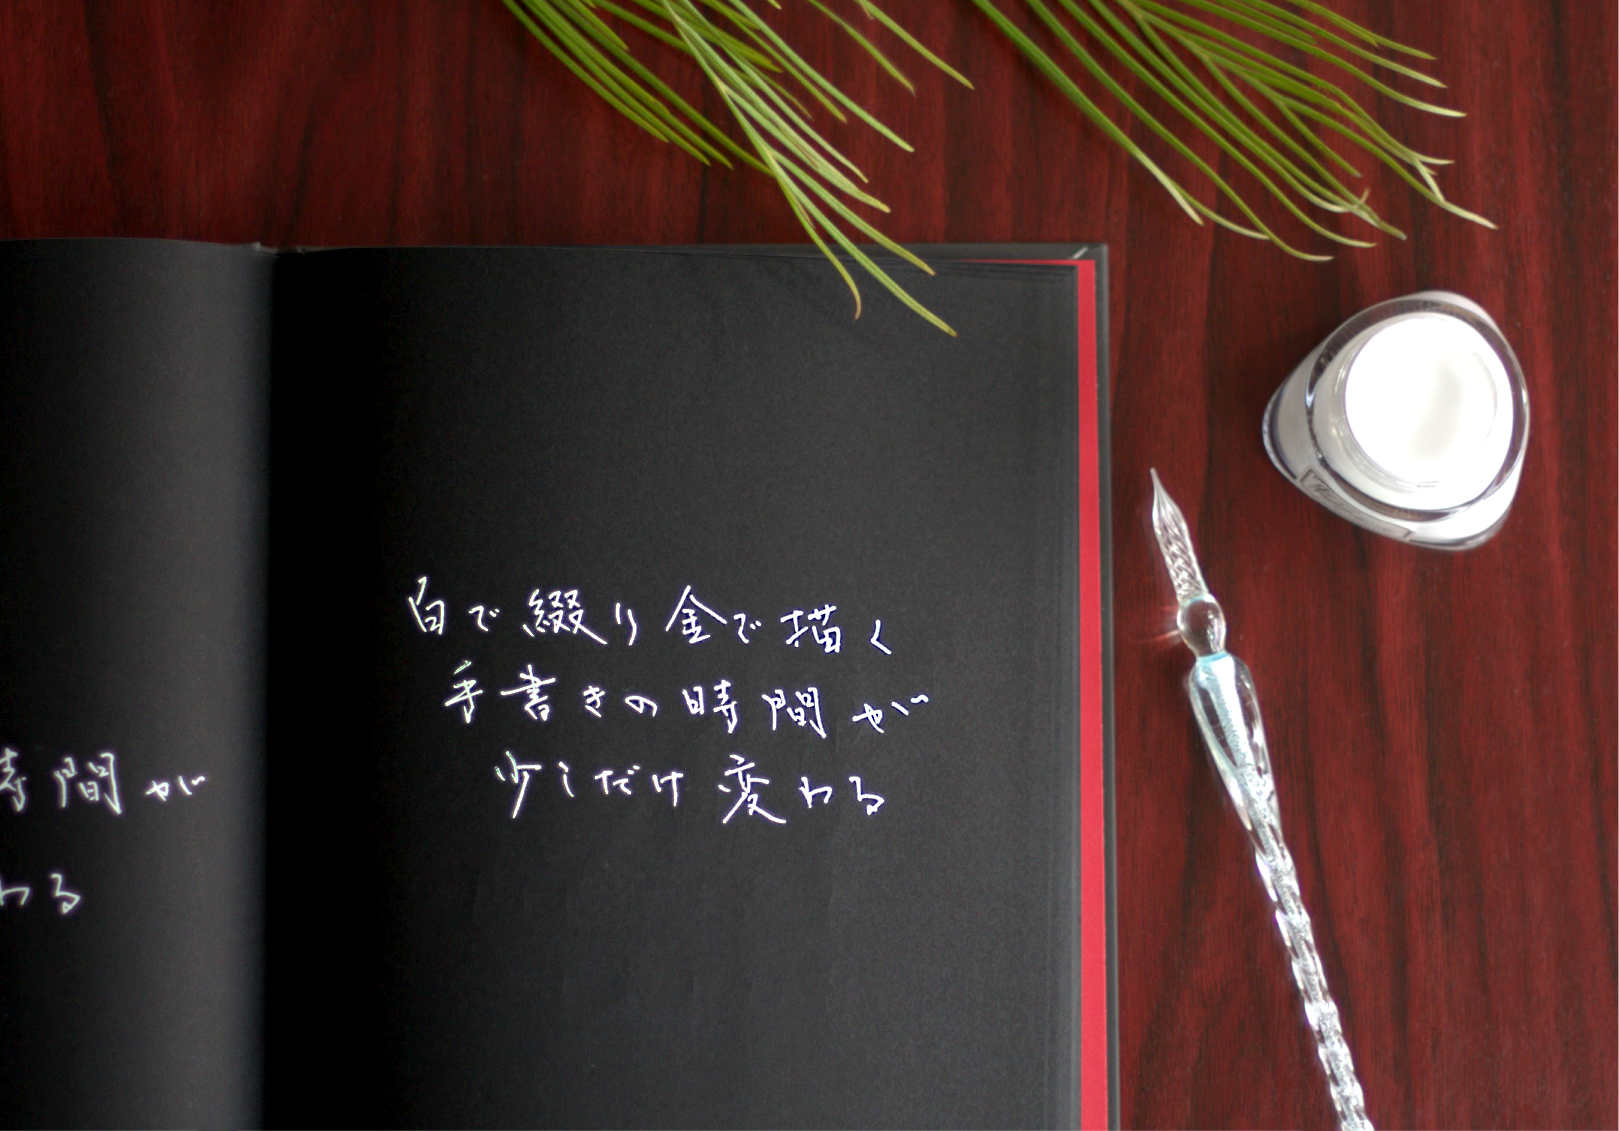 時間が
わる
白で綴り金で描く
手書きの時間が
少しだけ変わる